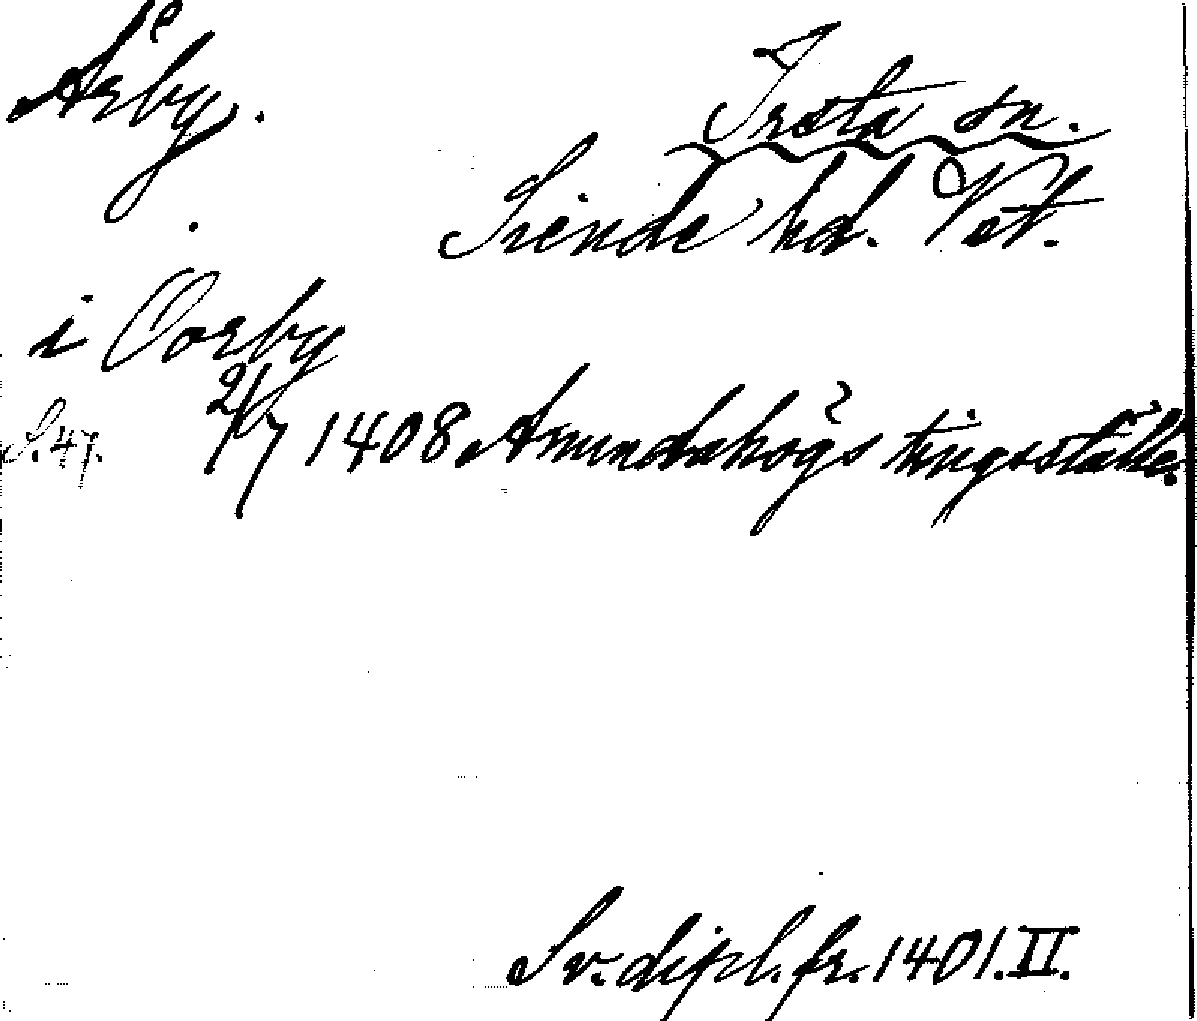 Årby.
Irsta sn.
Siende hd. Vst.
i Oorby
S. 47. 2/7 1408 Amundahögs tingsställe.
Sv. dipl. fr. 1401. II.